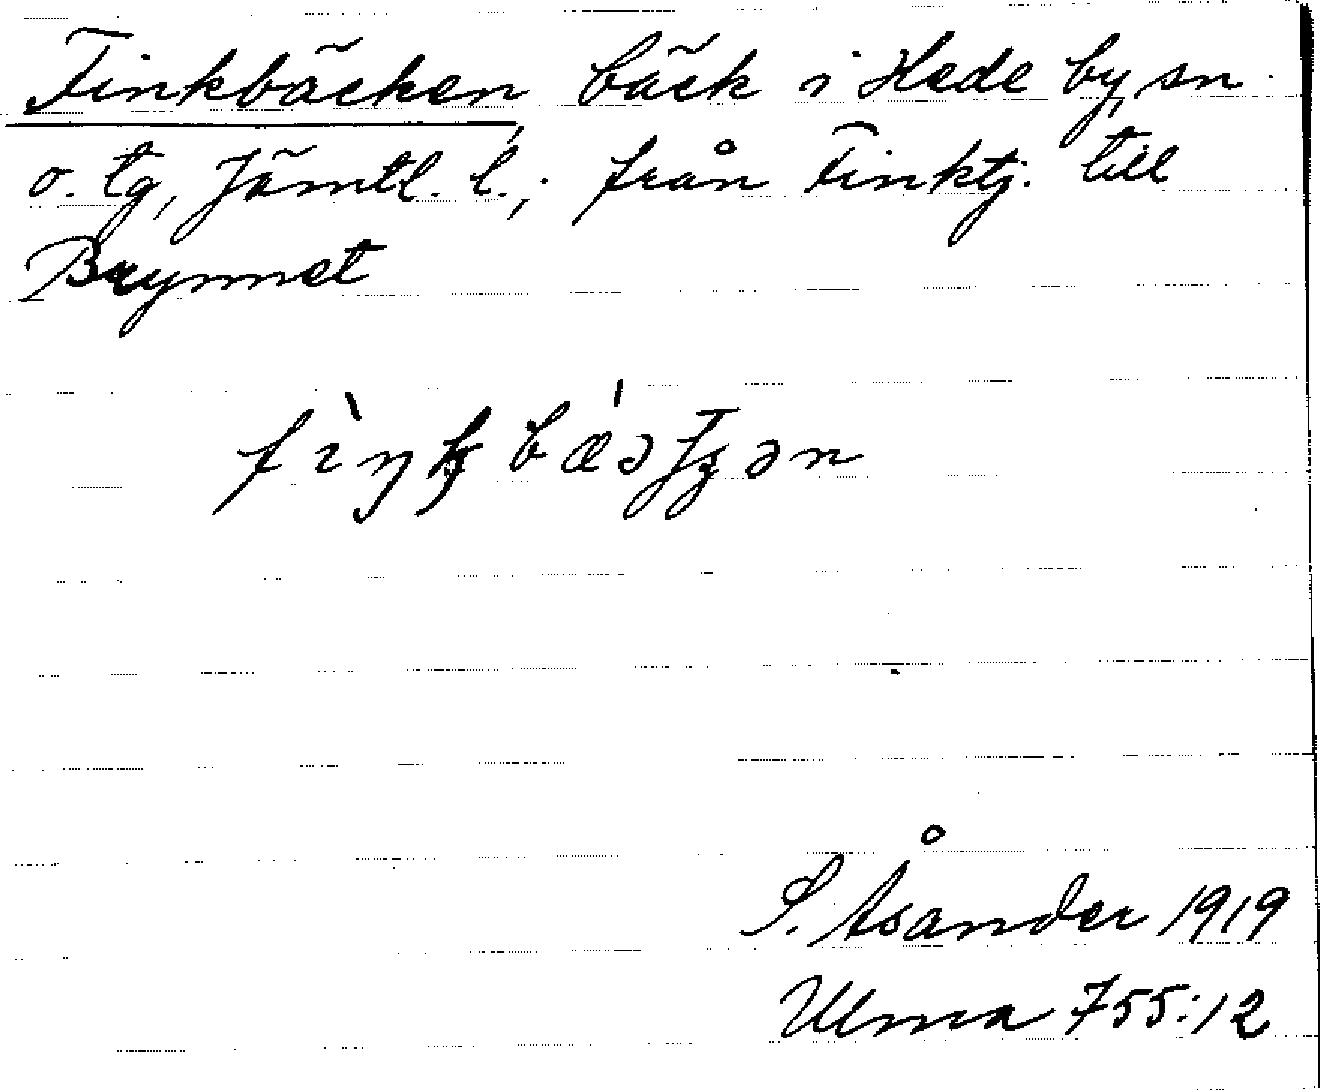 Finkbäcken, bäck i Hede by, sn
o. tg, Jämtl. l.; från Finktj. till
Brynnet
S. Åsander 1919
Ulma 755:12